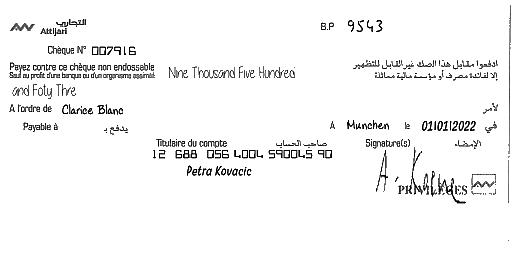 التجاري
Attijari
B.P 9543
Chèque N° 007916
Payez contre ce chèque non endossable
Sauf au profit d'une banque ou d'un organisme assimilé
Nine Thousand Five Hundred
ادفعوا مقابل هذا الصك غير القابل للتظهير
إلا لفائدة مصرف أو مؤسسة مالية مماثلة
and Foty Thre
A l'ordre de Clarice Blanc
لأمر
Payable à
يدفع بـ
A Munchen le 01/01/2022 في
Titulaire du compte صاحب الحساب
Signature(s) الإمضاء
12 688 056 4004 590045 90
Petra Kovacic
PRIVILEGES